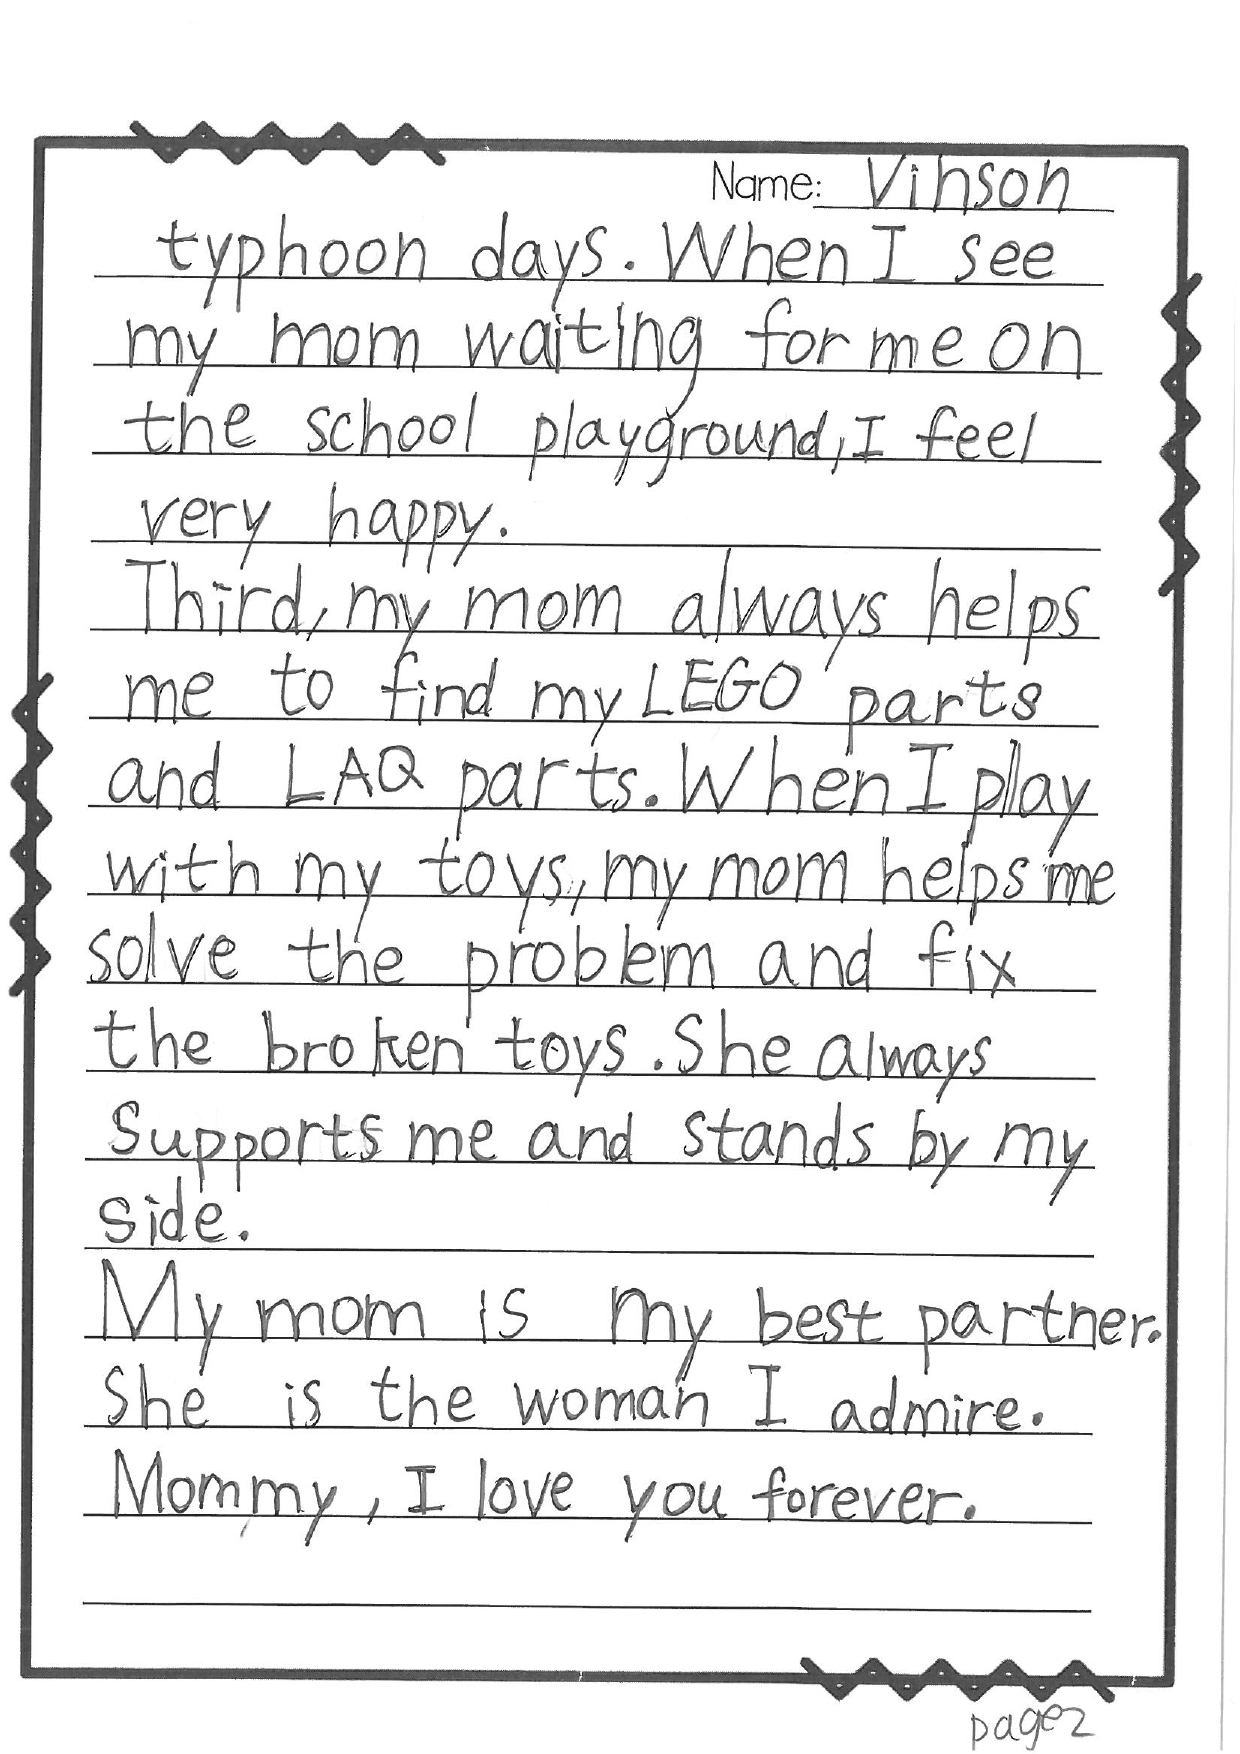 Name: Vinson
typhoon days. When I see
my mom waiting for me on
the school playground, I feel
very happy.
Third, my mom always helps
me to find my LEGO parts
and LAQ parts. When I play
with my toys, my mom helps me
solve the problem and fix
the broken toys. She always
Supports me and stands by my
side.
My mom is my best partner.
She is the woman I admire.
Mommy, I love you forever.
page2